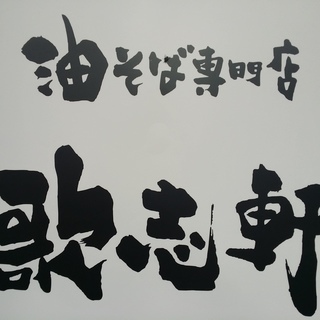 油そば専門店
歌志軒